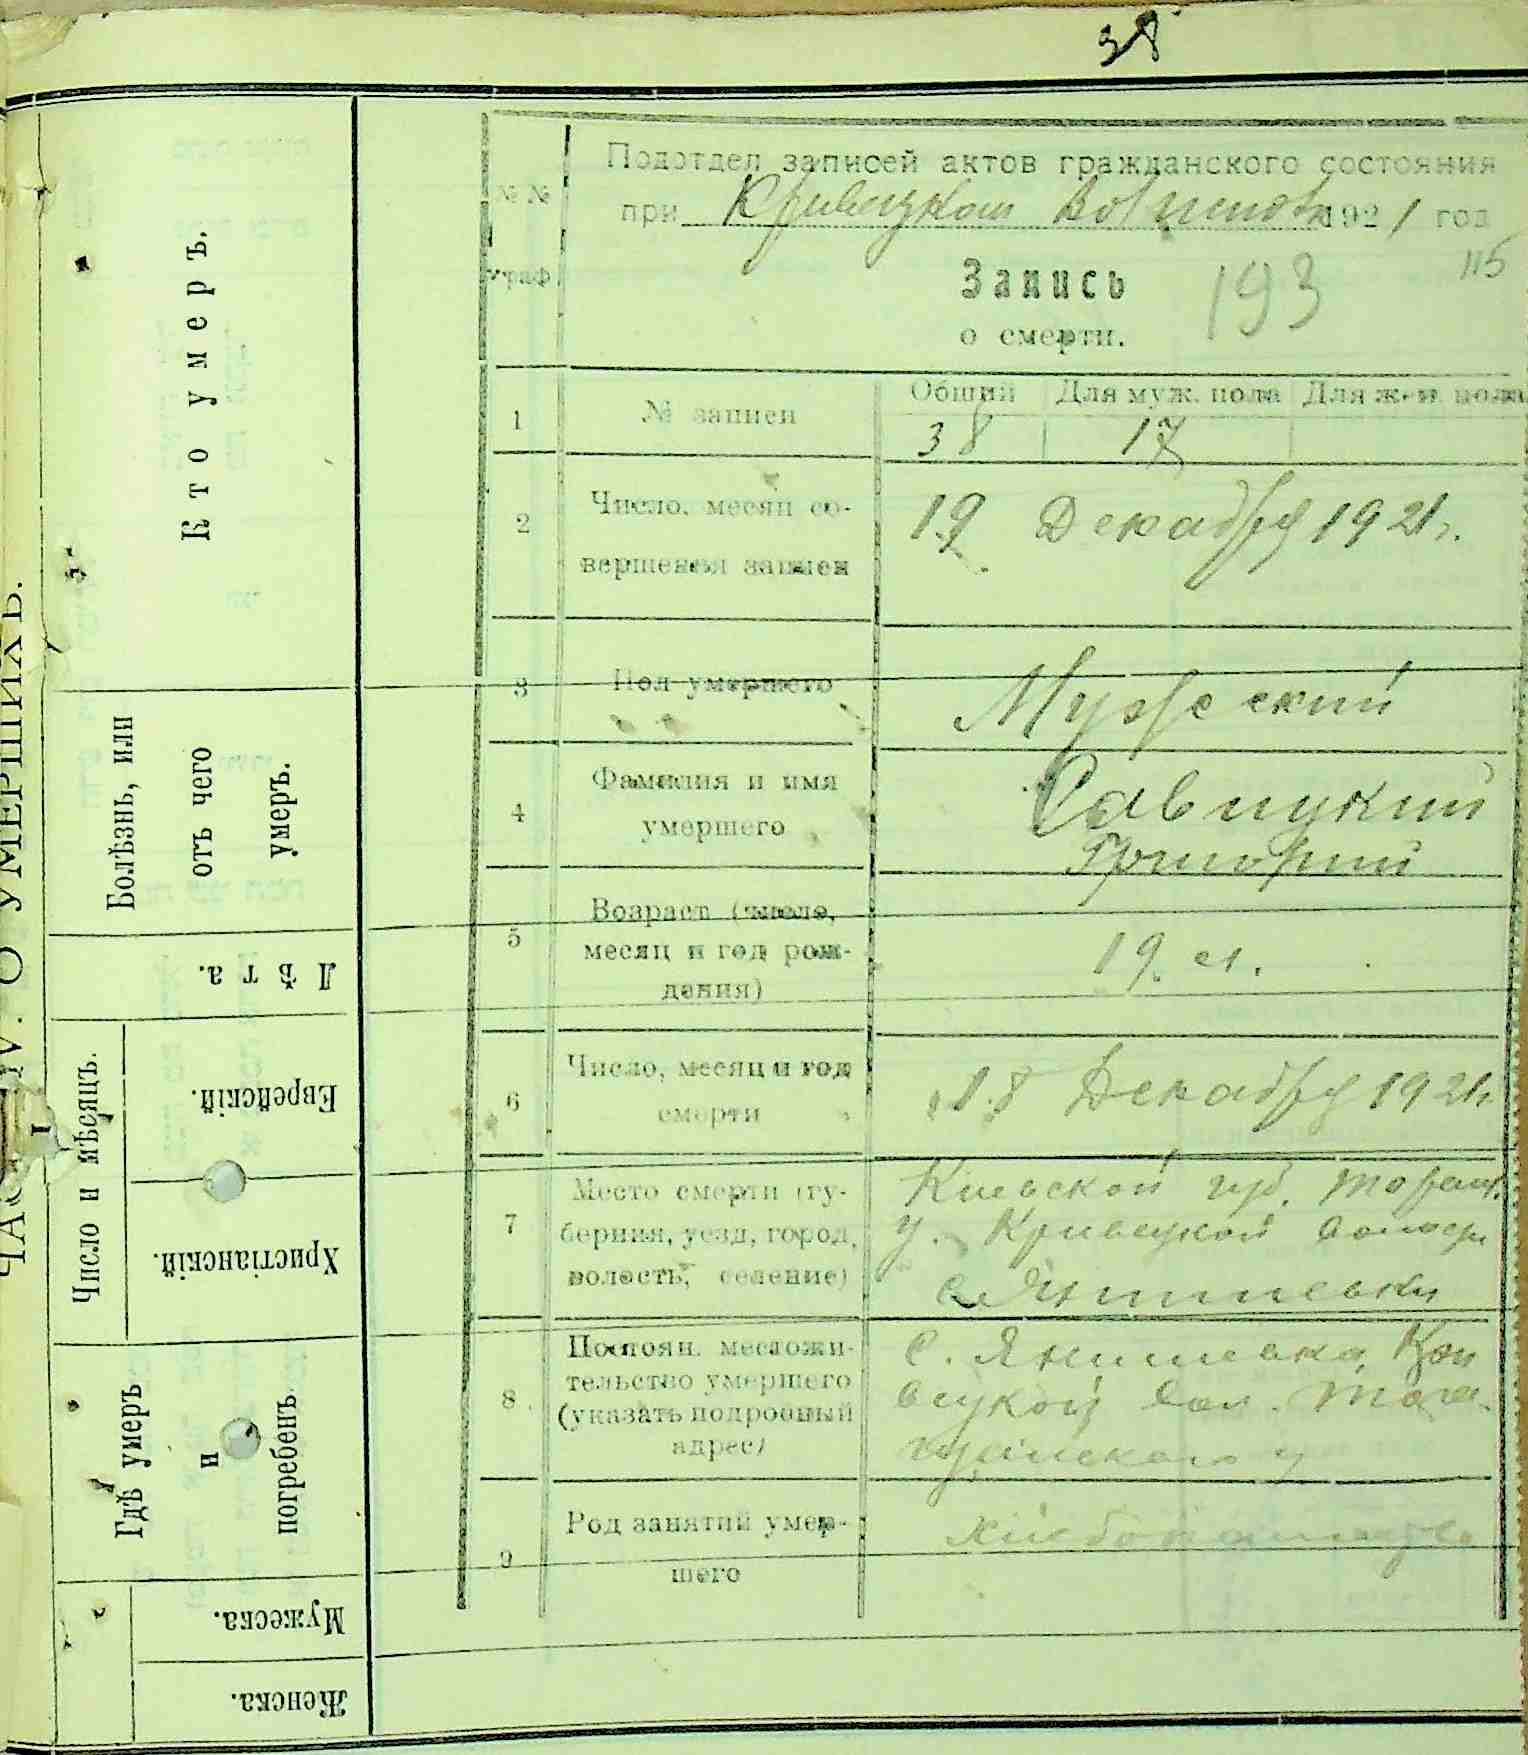 38
Подотдел записей актов гражданского состояния
при Кривецком 1921 год
№№ граф.
Запись
о смерти.
193
115
1 № записи
Общий Для муж. пола Для жен. пола
38 17
2 Число, месяц со-
вершения записи
19 Декабря 1921 г.
3 Пол умершего
Мужеский
4 Фамилия и имя
умершего
Савицкий
Григорий
5 Возраст (число,
месяц и год рож-
дения)
19. л.
6 Число, месяц и год
смерти
18 Декабря 1921 г.
7 Место смерти (гу-
берния, уезд, город,
волость, селение)
Киевской губ. Торащ.
у. Кривецкой волости
с. Янишевки
8 Постоян. местожи-
тельство умершего
(указать подробный
адрес)
С. Янишевка Кри
вецкой вол. Тара-
щанского у
9 Род занятий умер-
шего
Хлебопашество
ЧАСТЬ IV. О УМЕРШИХЪ.
Кто умеръ.
Болѣзнь, или
отъ чего
умеръ.
Лѣта.
Число и мѣсяцъ.
Еврейскій.
Христіанскій.
Гдѣ умеръ
и
погребенъ
Мужеска.
Женска.